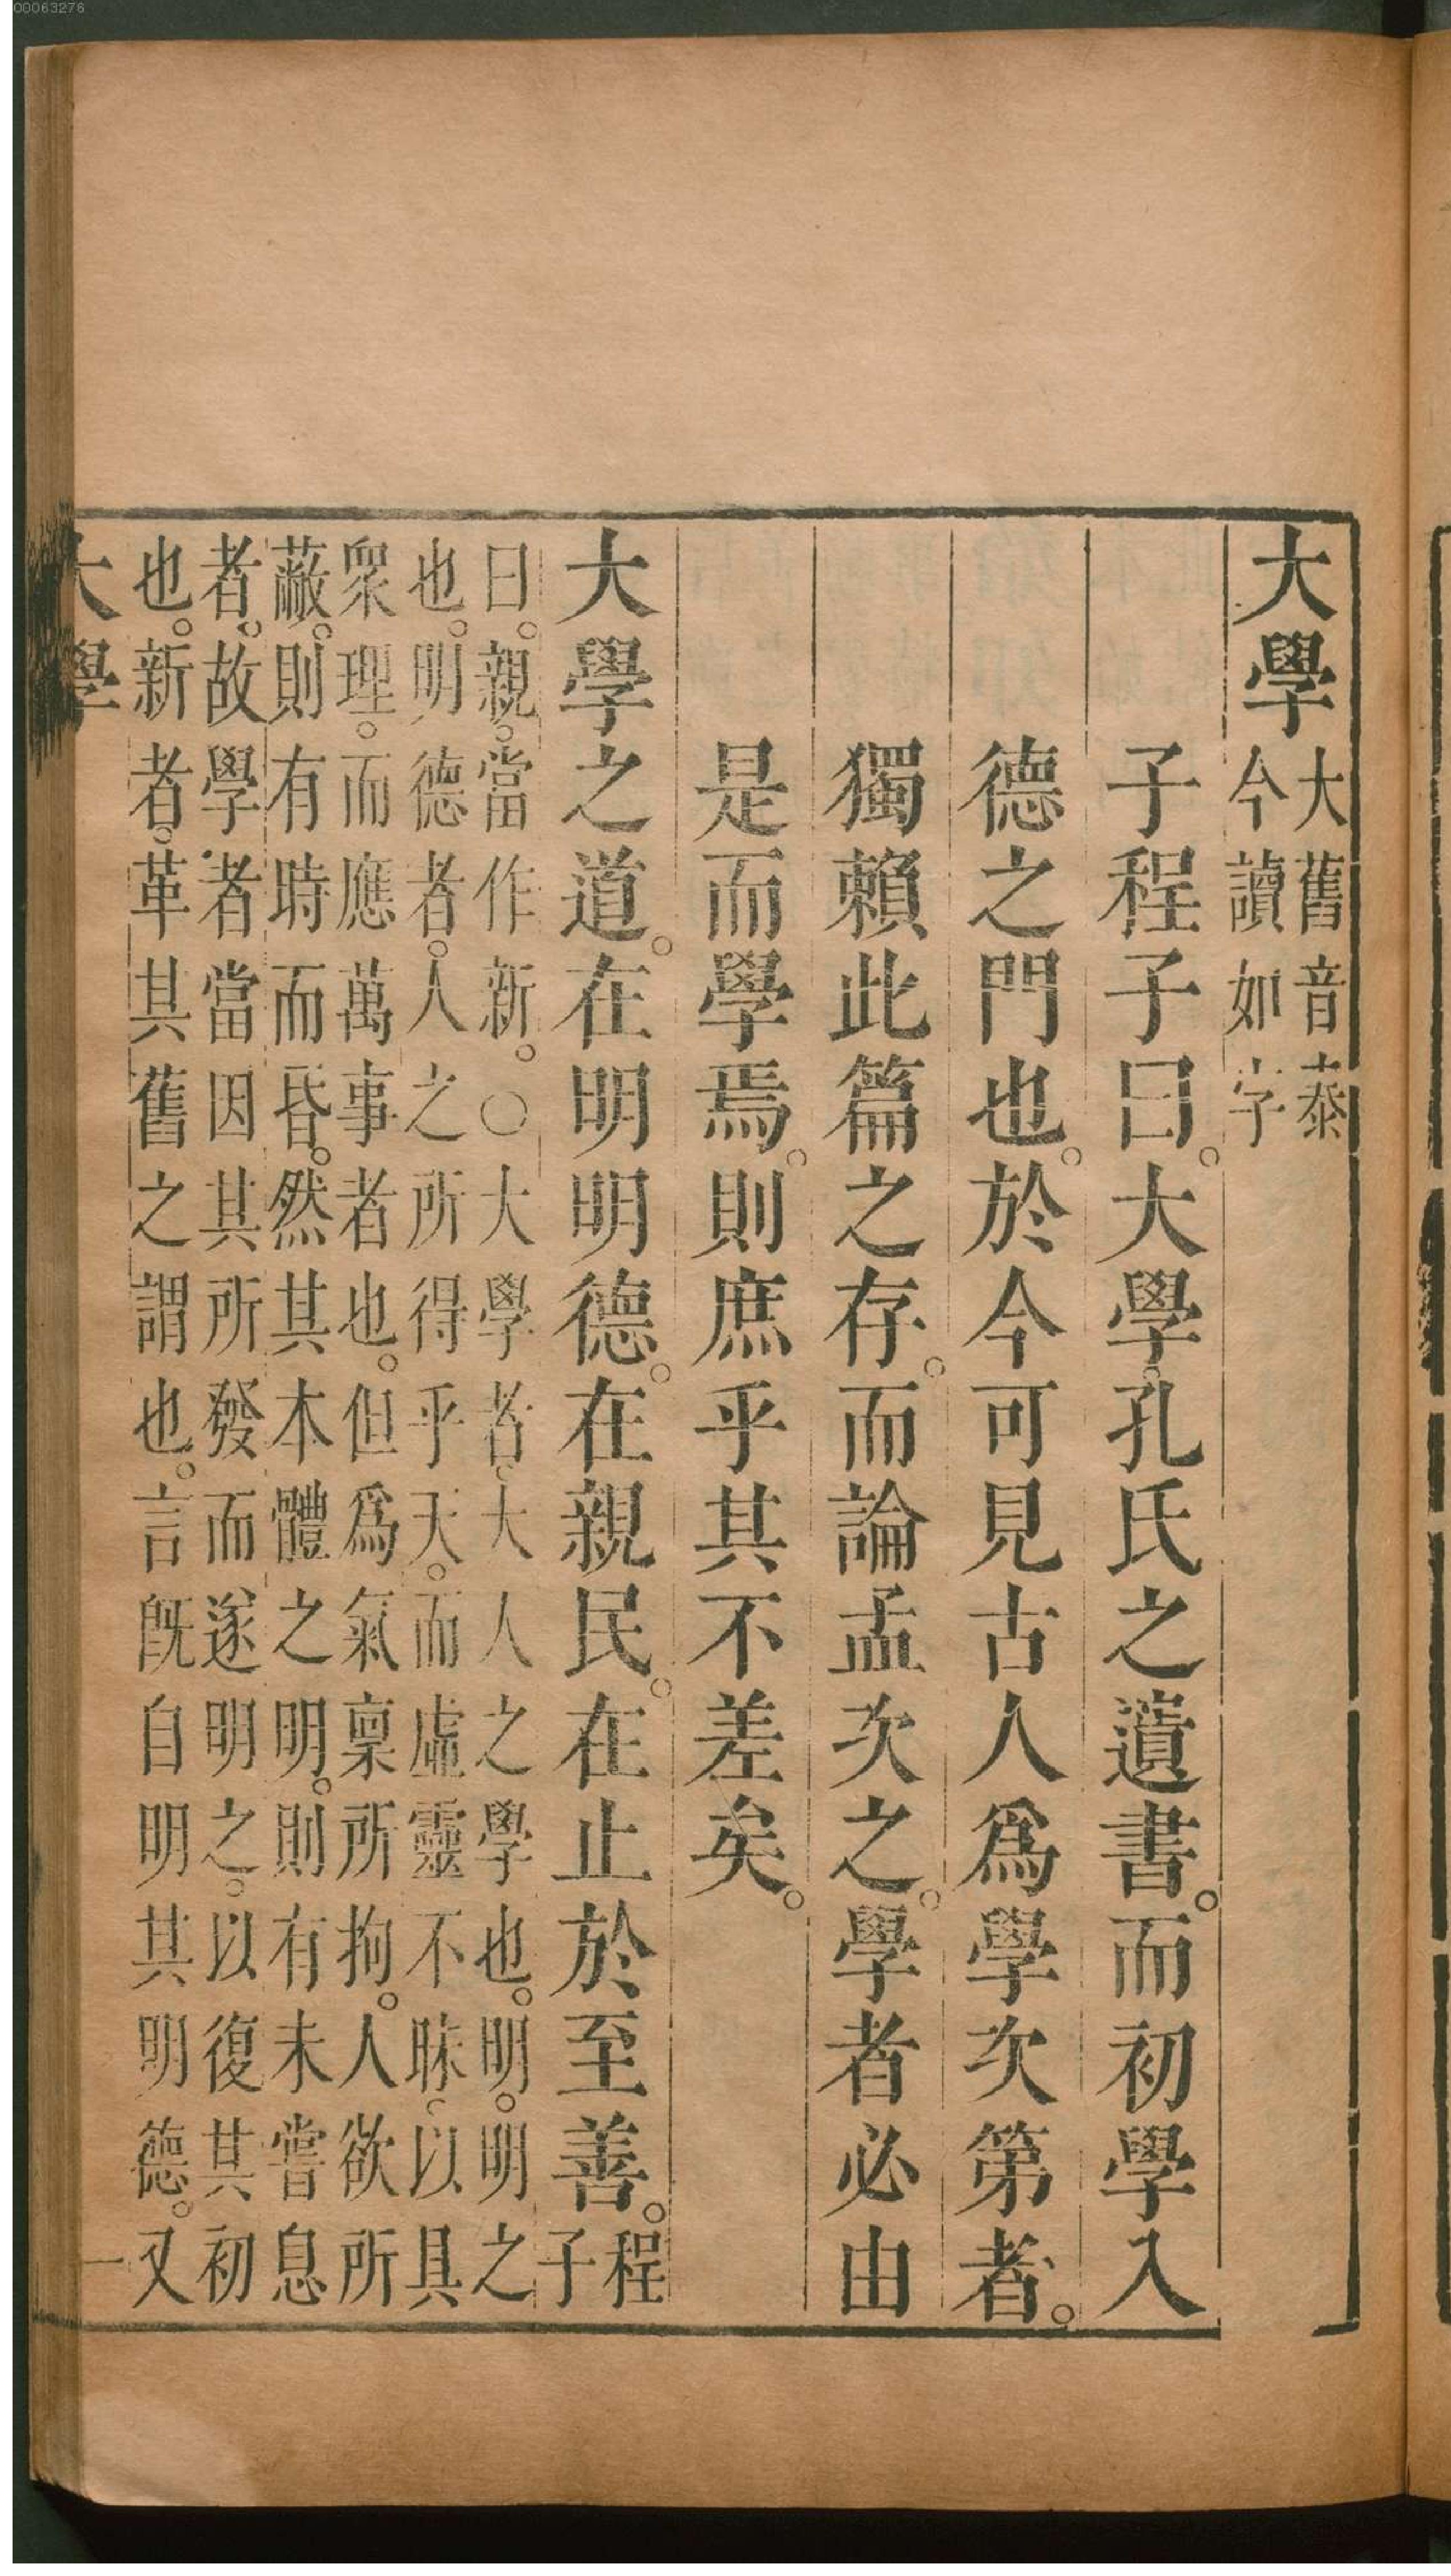 00063276
大學
大舊音泰
今讀如字
子程子曰。大學。孔氏之遺書。而初學入
德之門也。於今可見古人爲學次第者。
獨賴此篇之存。而論孟次之。學者必由
是而學焉。則庶乎其不差矣。
大學之道。在明明德。在親民。在止於至善。
程
子
曰。親。當作新。○大學者、大人之學也。明。明之
也。明德者。人之所得乎天。而虛靈不昧、以具
衆理。而應萬事者也。但爲氣稟所拘。人欲所
蔽。則有時而昏。然其本體之明。則有未嘗息
者。故學者當因其所發而遂明之。以復其初
也。新者。革其舊之謂也。言旣自明其明德。又
大學
一